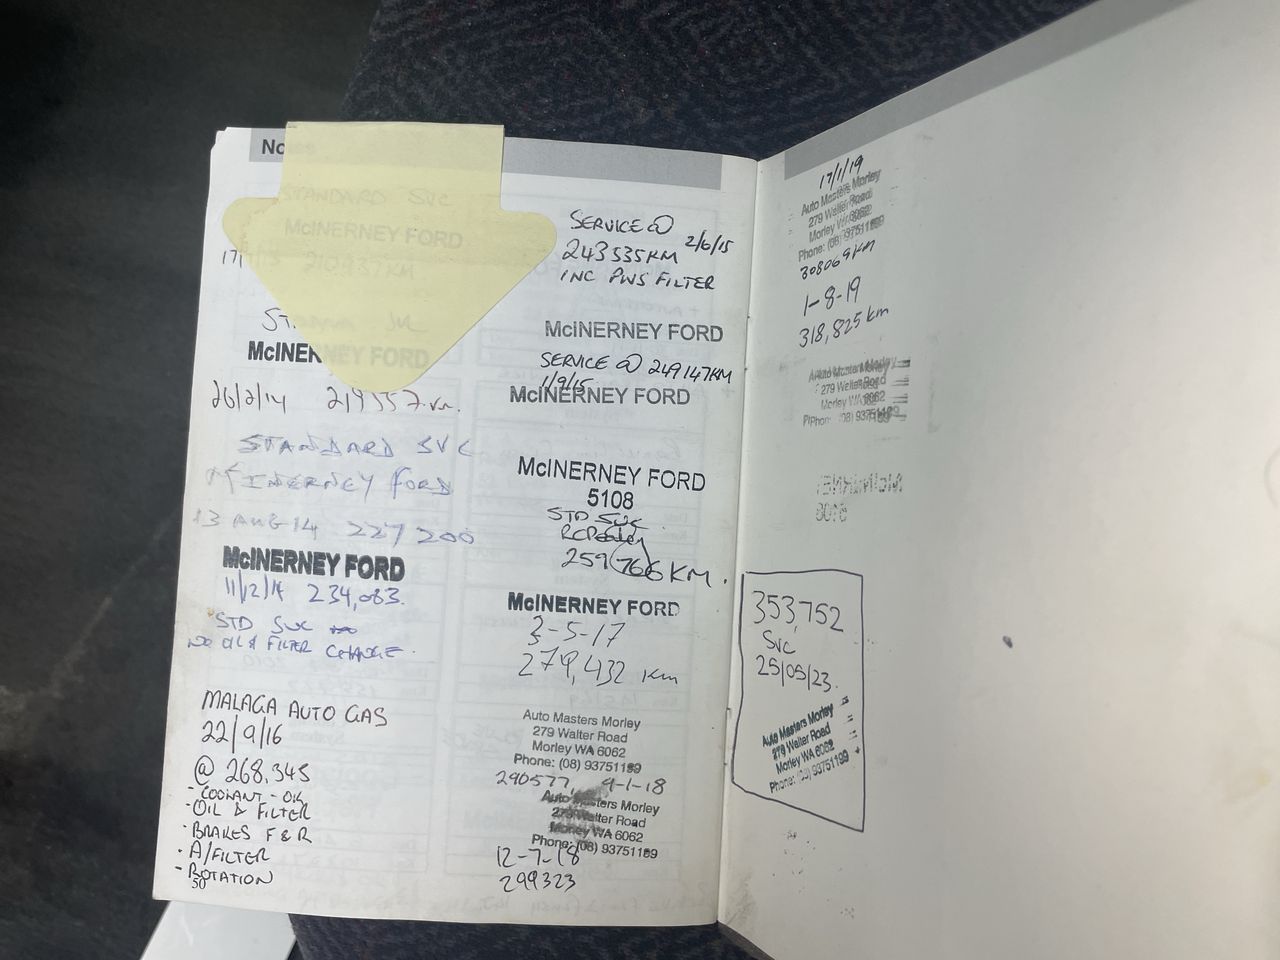 Notes
STANDARD SVC
McINERNEY FORD
McINERNEY FORD
26/2/14 219557 km.
STANDARD SVC
McINERNEY FORD
13 AUG 14 227 200
McINERNEY FORD
11/12/14 234,083.
STD SVC
NO OIL & FILTER CHANGE.
MALAGA AUTO GAS
22/9/16
@ 268,345
- COOLANT - OK
- OIL & FILTER
- BRAKES F & R
- A/FILTER
- ROTATION
50
SERVICE @ 2/6/15
243535KM
INC PWS FILTER
McINERNEY FORD
SERVICE @ 249147KM
1/9/15
McINERNEY FORD
McINERNEY FORD
5108
STD SVC
259766 KM.
McINERNEY FORD
2-5-17
279,432 km
Auto Masters Morley
279 Walter Road
Morley WA 6062
Phone: (08) 93751199
290577, 9-1-18
Auto Masters Morley
279 Walter Road
Morley WA 6062
Phone: (08) 93751199
12-7-18
299323
17/1/19
Auto Masters Morley
279 Walter Road
Morley WA 6062
Phone: (08) 93751199
308069km
1-8-19
318,825 km
Auto Masters Morley
279 Walter Road
Morley WA 6062
Phone: (08) 93751199
353,752
SVC
25/05/23.
Auto Masters Morley
279 Walter Road
Morley WA 6062
Phone: (08) 93751199